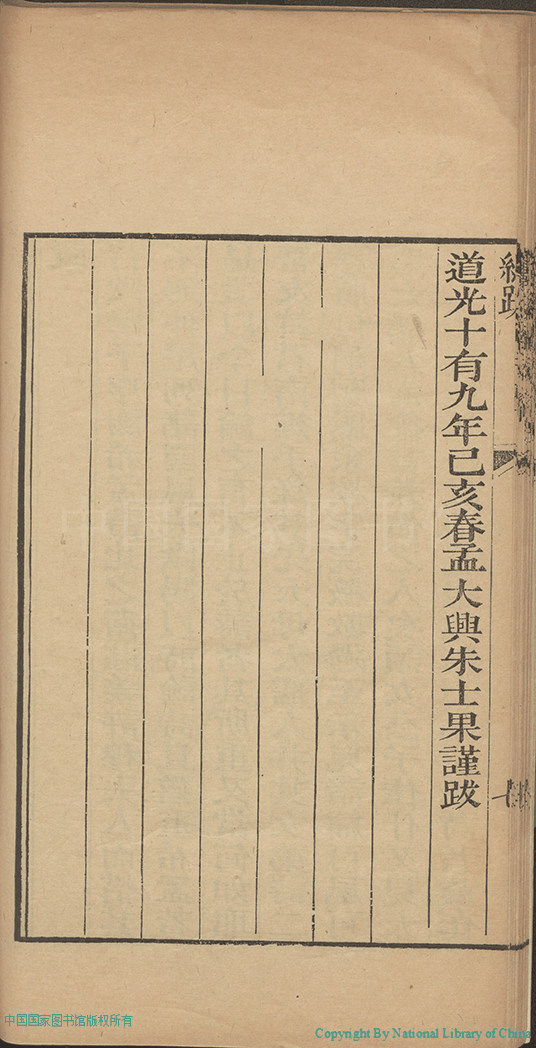 道光十有九年己亥春孟大興朱士果謹跋
中国国家图书馆版权所有
Copyright By National Library of China